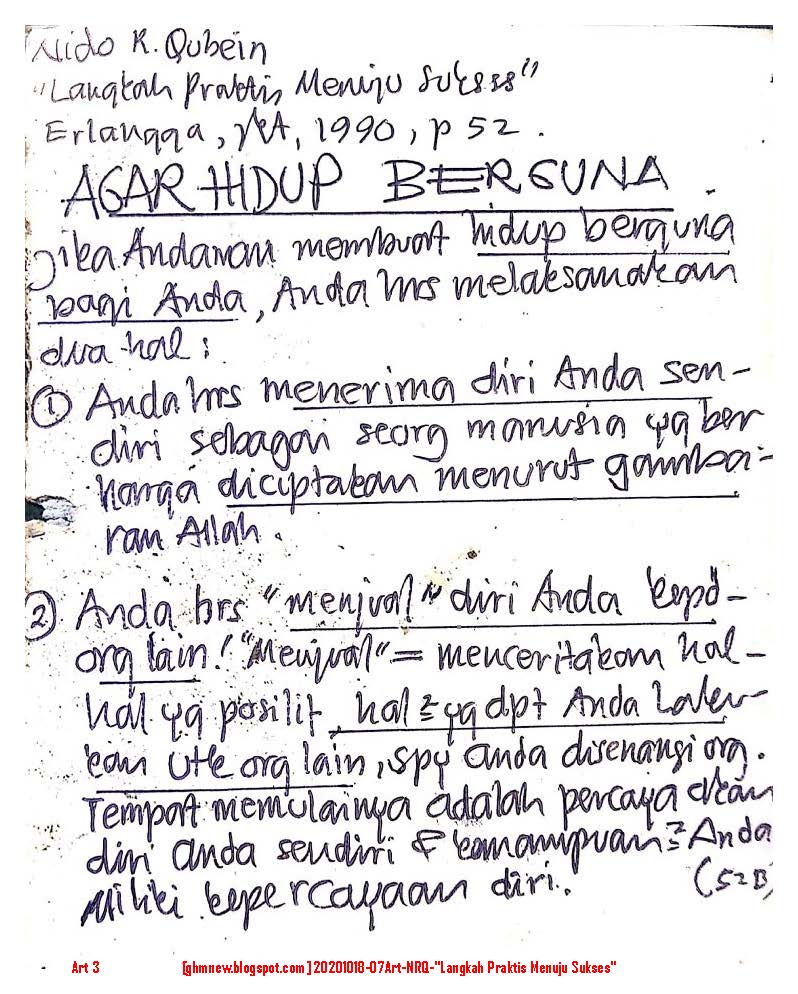 Nido R. Qubein
"Langkah Praktis Menuju Sukses"
Erlangga, JKA, 1990, p 52.
AGAR HIDUP BERGUNA.
Jika Anda mau membuat hidup berguna
bagi Anda, Anda hrs melaksanakan
dua hal:
① Anda hrs menerima diri Anda sen-
diri sebagai seorg manusia yg ber
harga diciptakan menurut gamba-
ran Allah.
② Anda hrs "menjual" diri Anda kepd-
org lain! "Menjual" = menceritakan hal-
hal yg positif, hal2 yg dpt Anda laku-
kan utk org lain, spy anda disenangi org.
Tempat memulainya adalah percaya akan
diri anda sendiri & kemampuan2 Anda
Miliki kepercayaan diri.
(52B)
- Art 3 [ghmnew.blogspot.com] 20201018-07Art-NRQ-"Langkah Praktis Menuju Sukses"